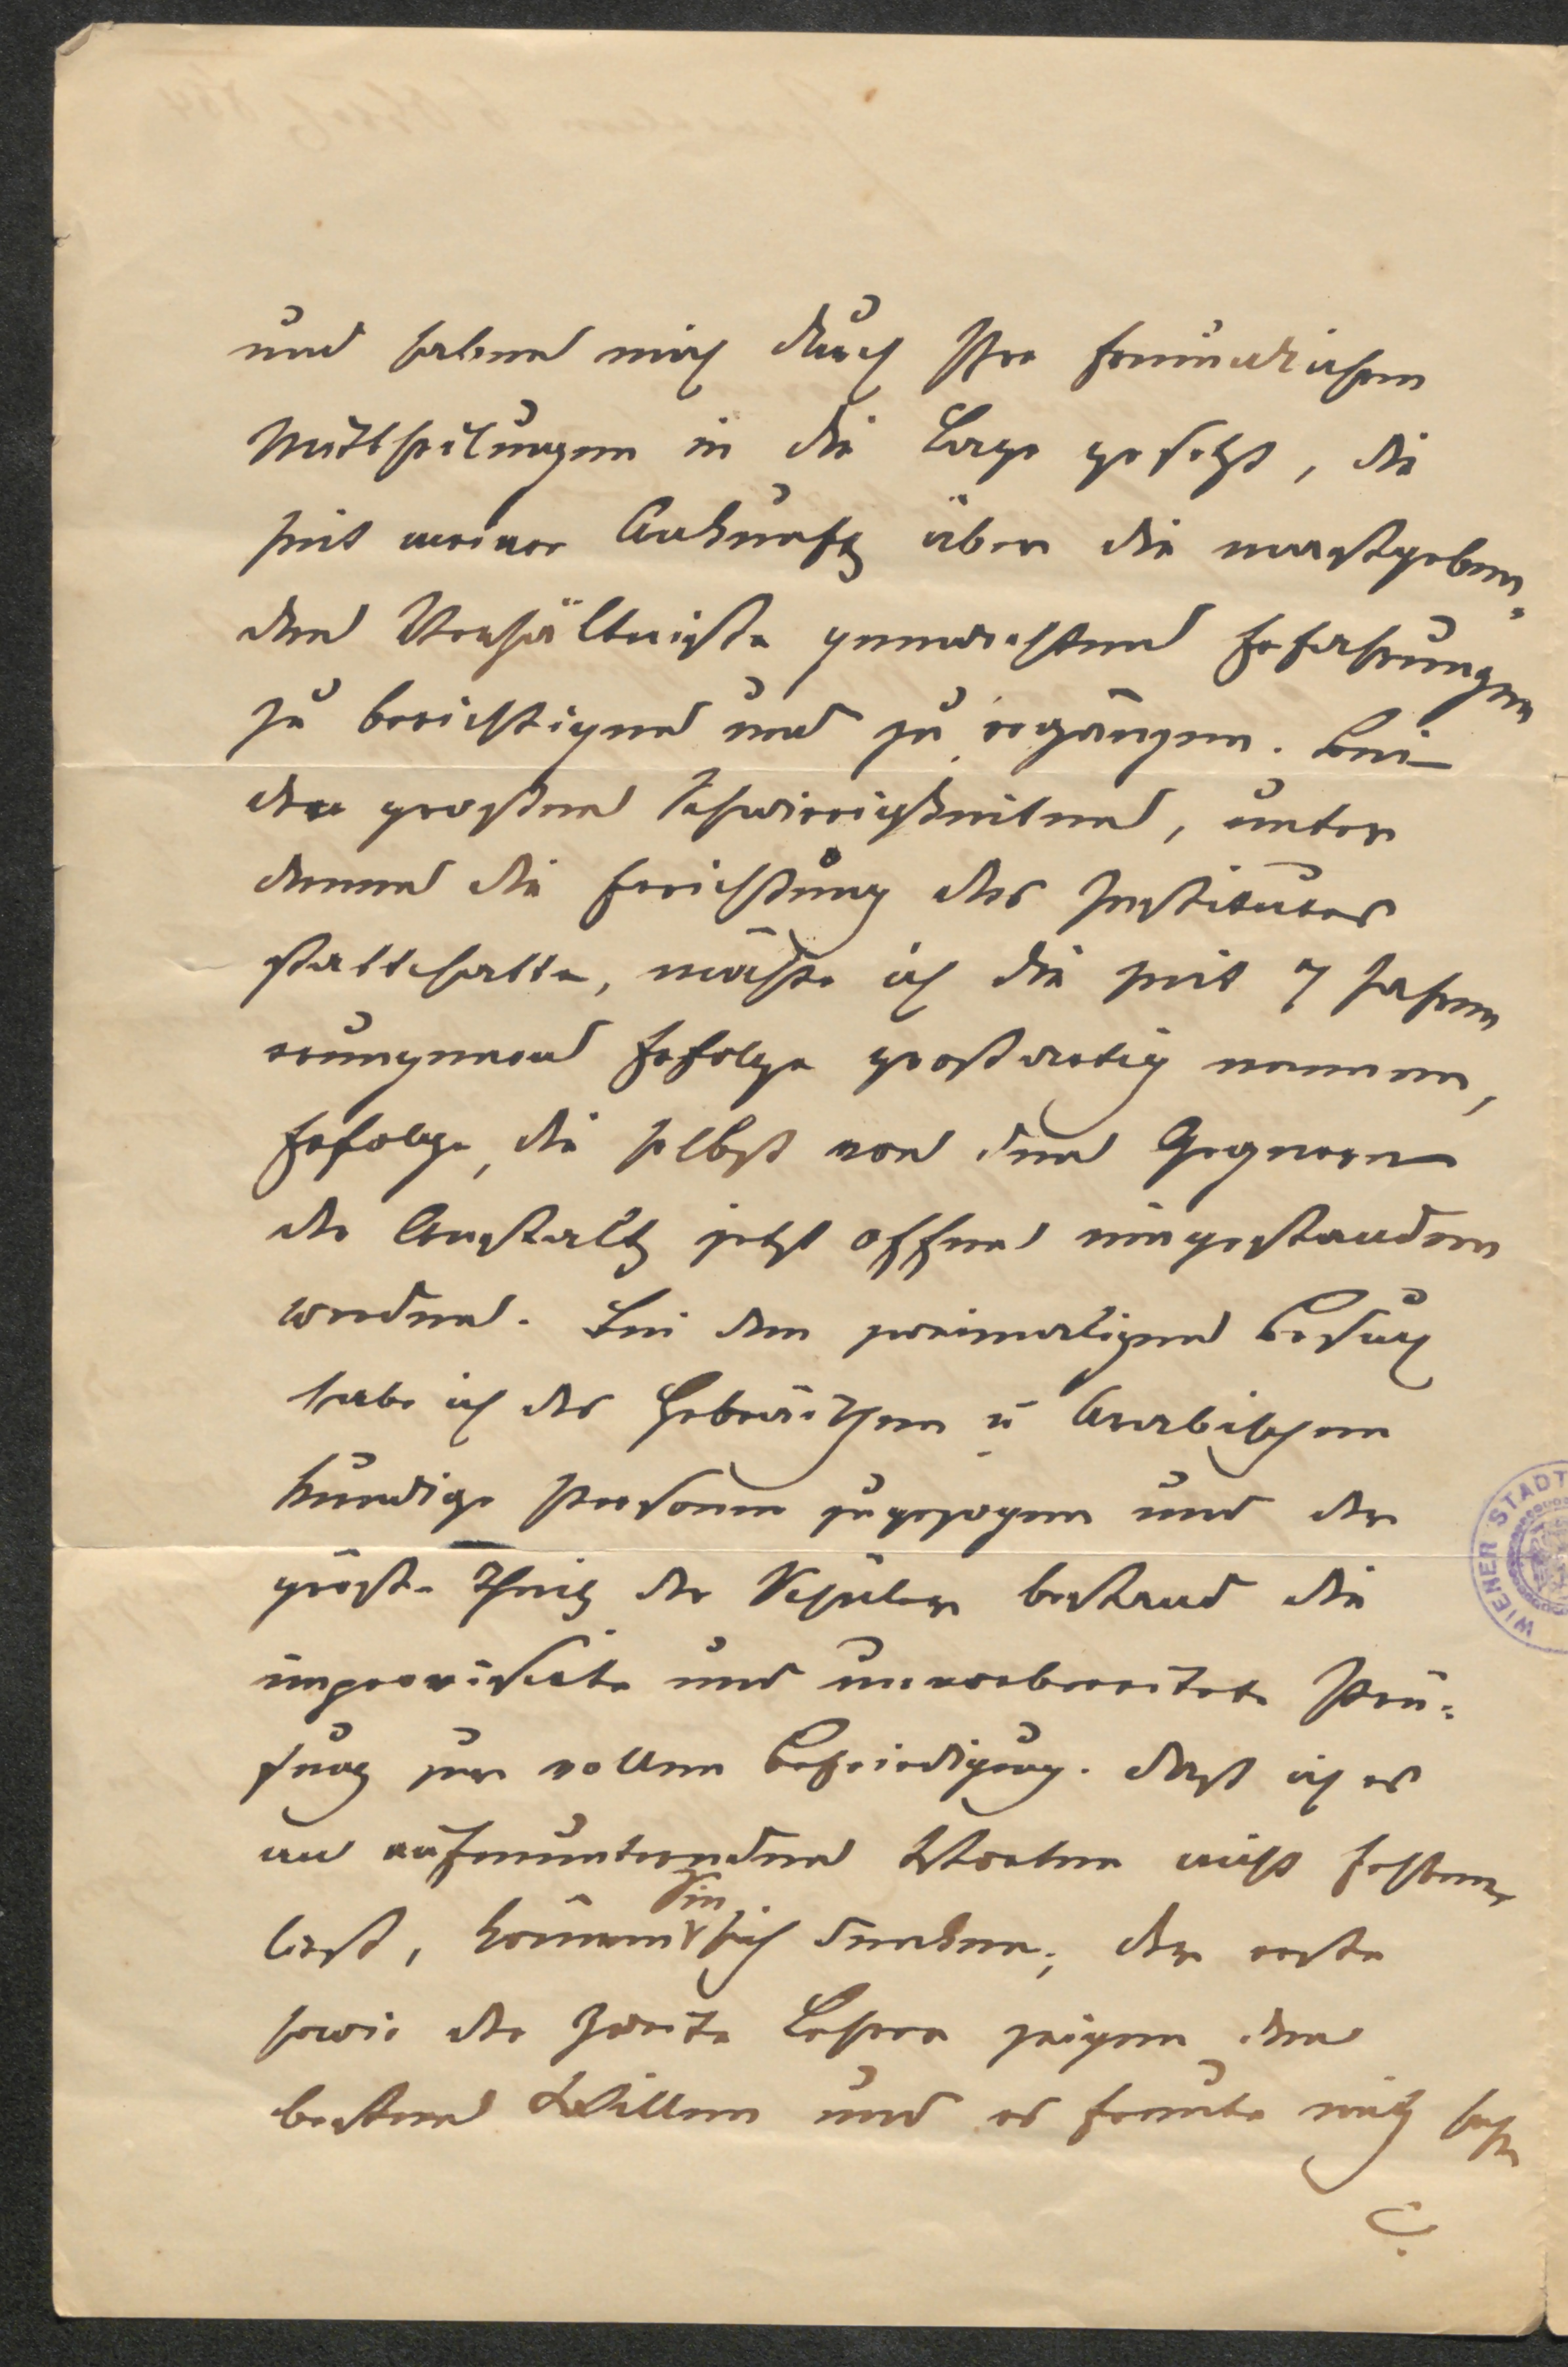 und haben mich durch Ihre freundlichen
Mittheilungen in die Lage gesetzt, die
seit meiner Ankunft über die maßgeben-
den Verhältnisse gemachten Erfahrungen
zu berichtigen und zu ergänzen. Bei
den großen Schwierigkeiten, unter
denen die Errichtung des Institutes
statthatte, möchte ich die seit 7 Jahren
errungenen Erfolge großartig nennen,
Erfolge, die selbst von den Gegnern
der Anstalt jetzt offen eingestanden
werden. Bei dem zweimaligen Besuch
habe ich des Hebräischen u Arabischen
kundige Personen zugezogen und der
größte Theil der Schüler bestand die
improvisirte und unvorbereitete Prü-
fung zur vollen Befriedigung. Daß ich es
an aufmunternden Worten nicht fehlen
ließ, können Sie sich denken; der erste
sowie der zweite Lehrer zeigen den
besten Willen und es freute mich sehr
WIENER STADT